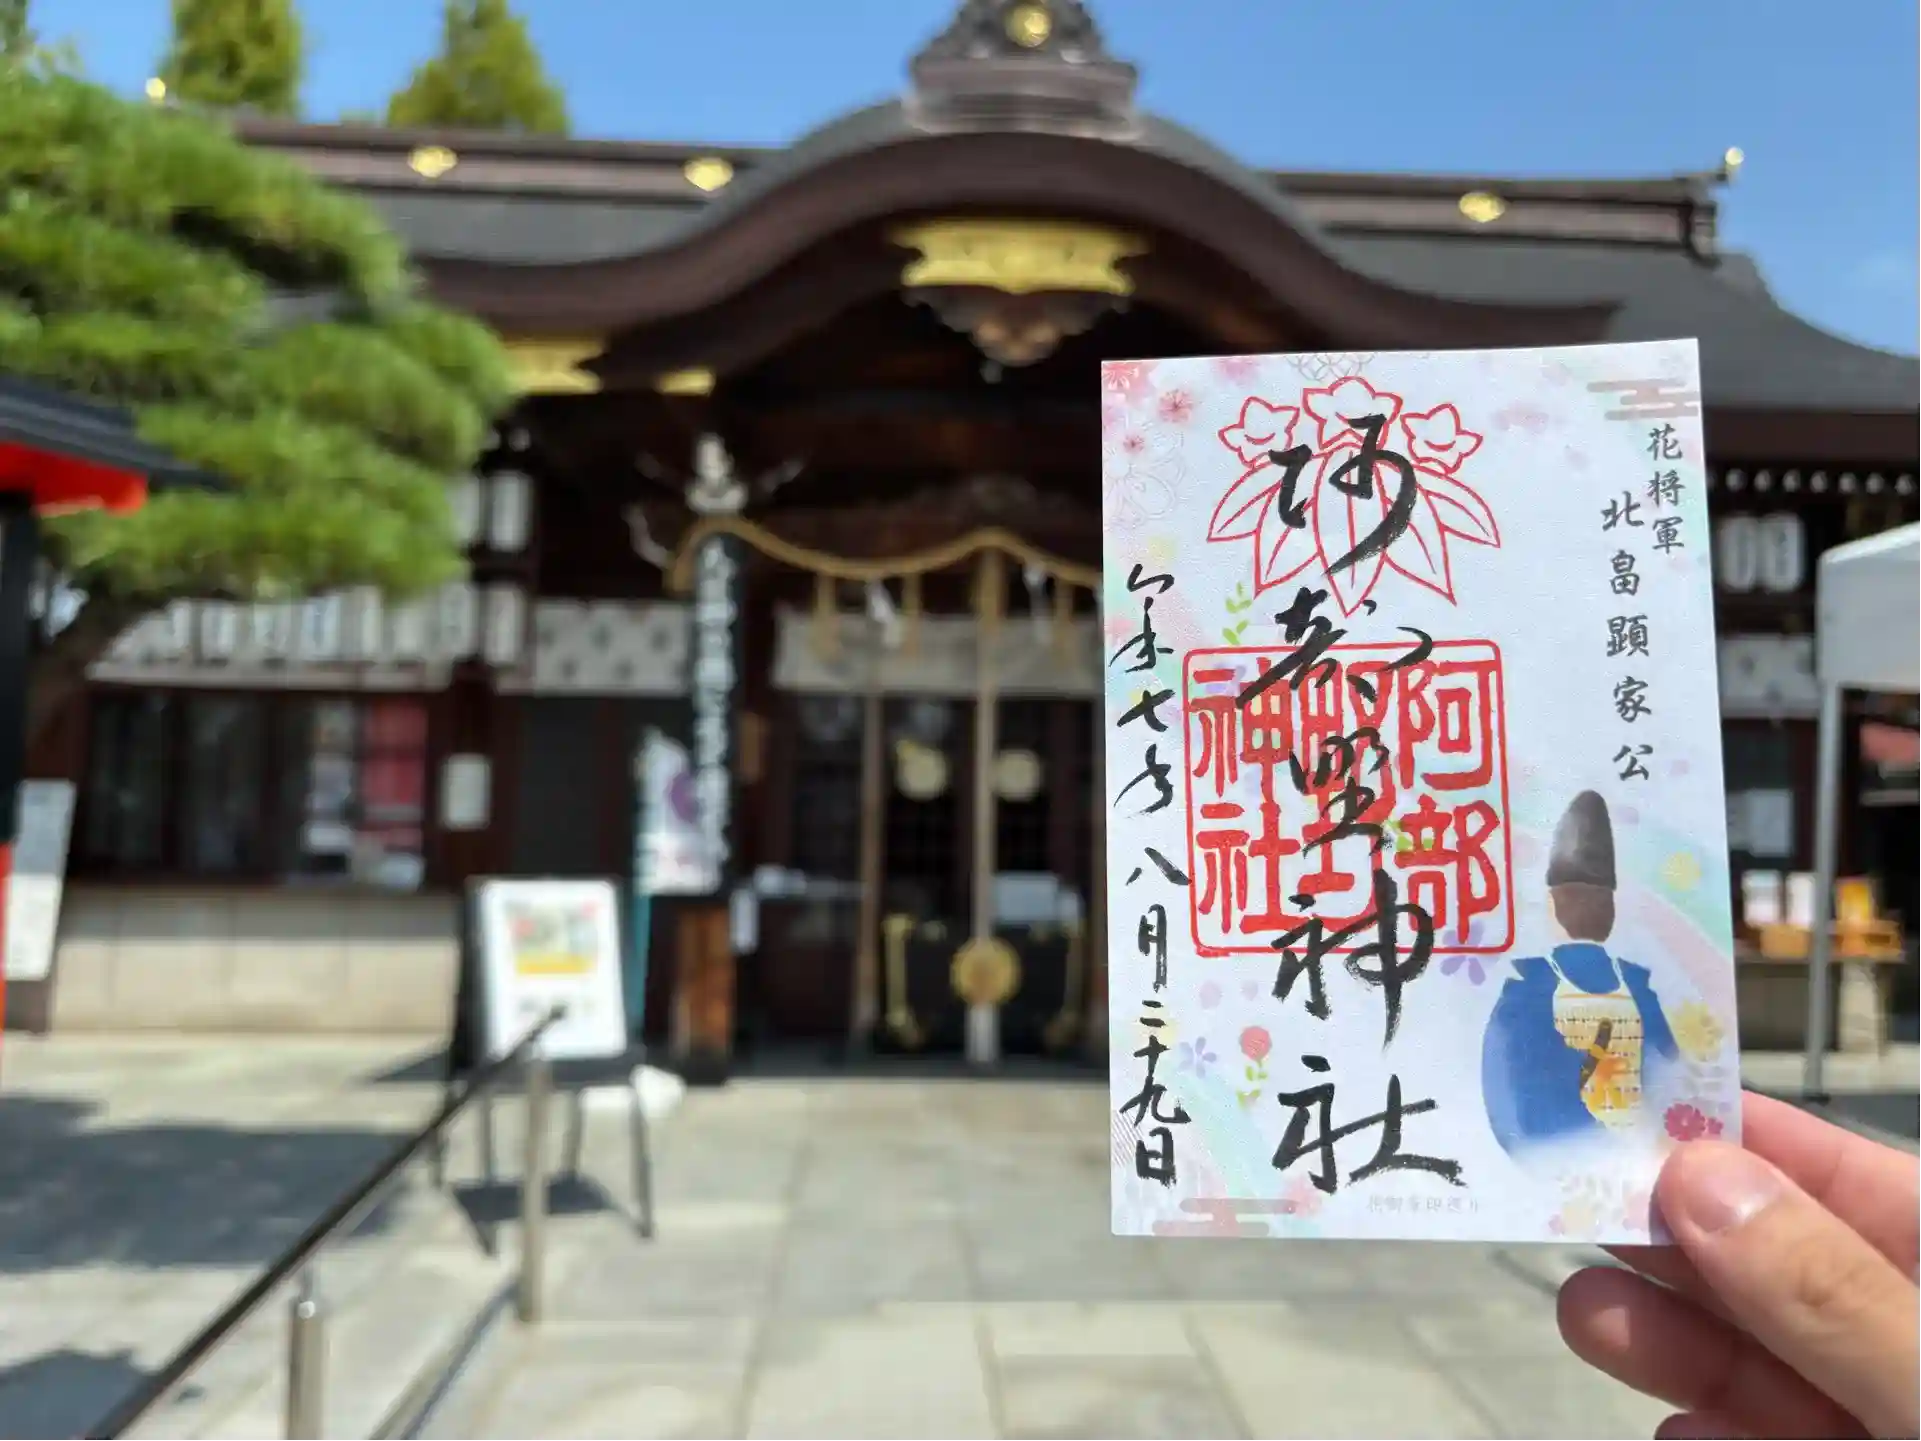 花将軍
北畠顕家公
阿部野神社
阿部野神社
令和七年八月二十九日
花御朱印巡り